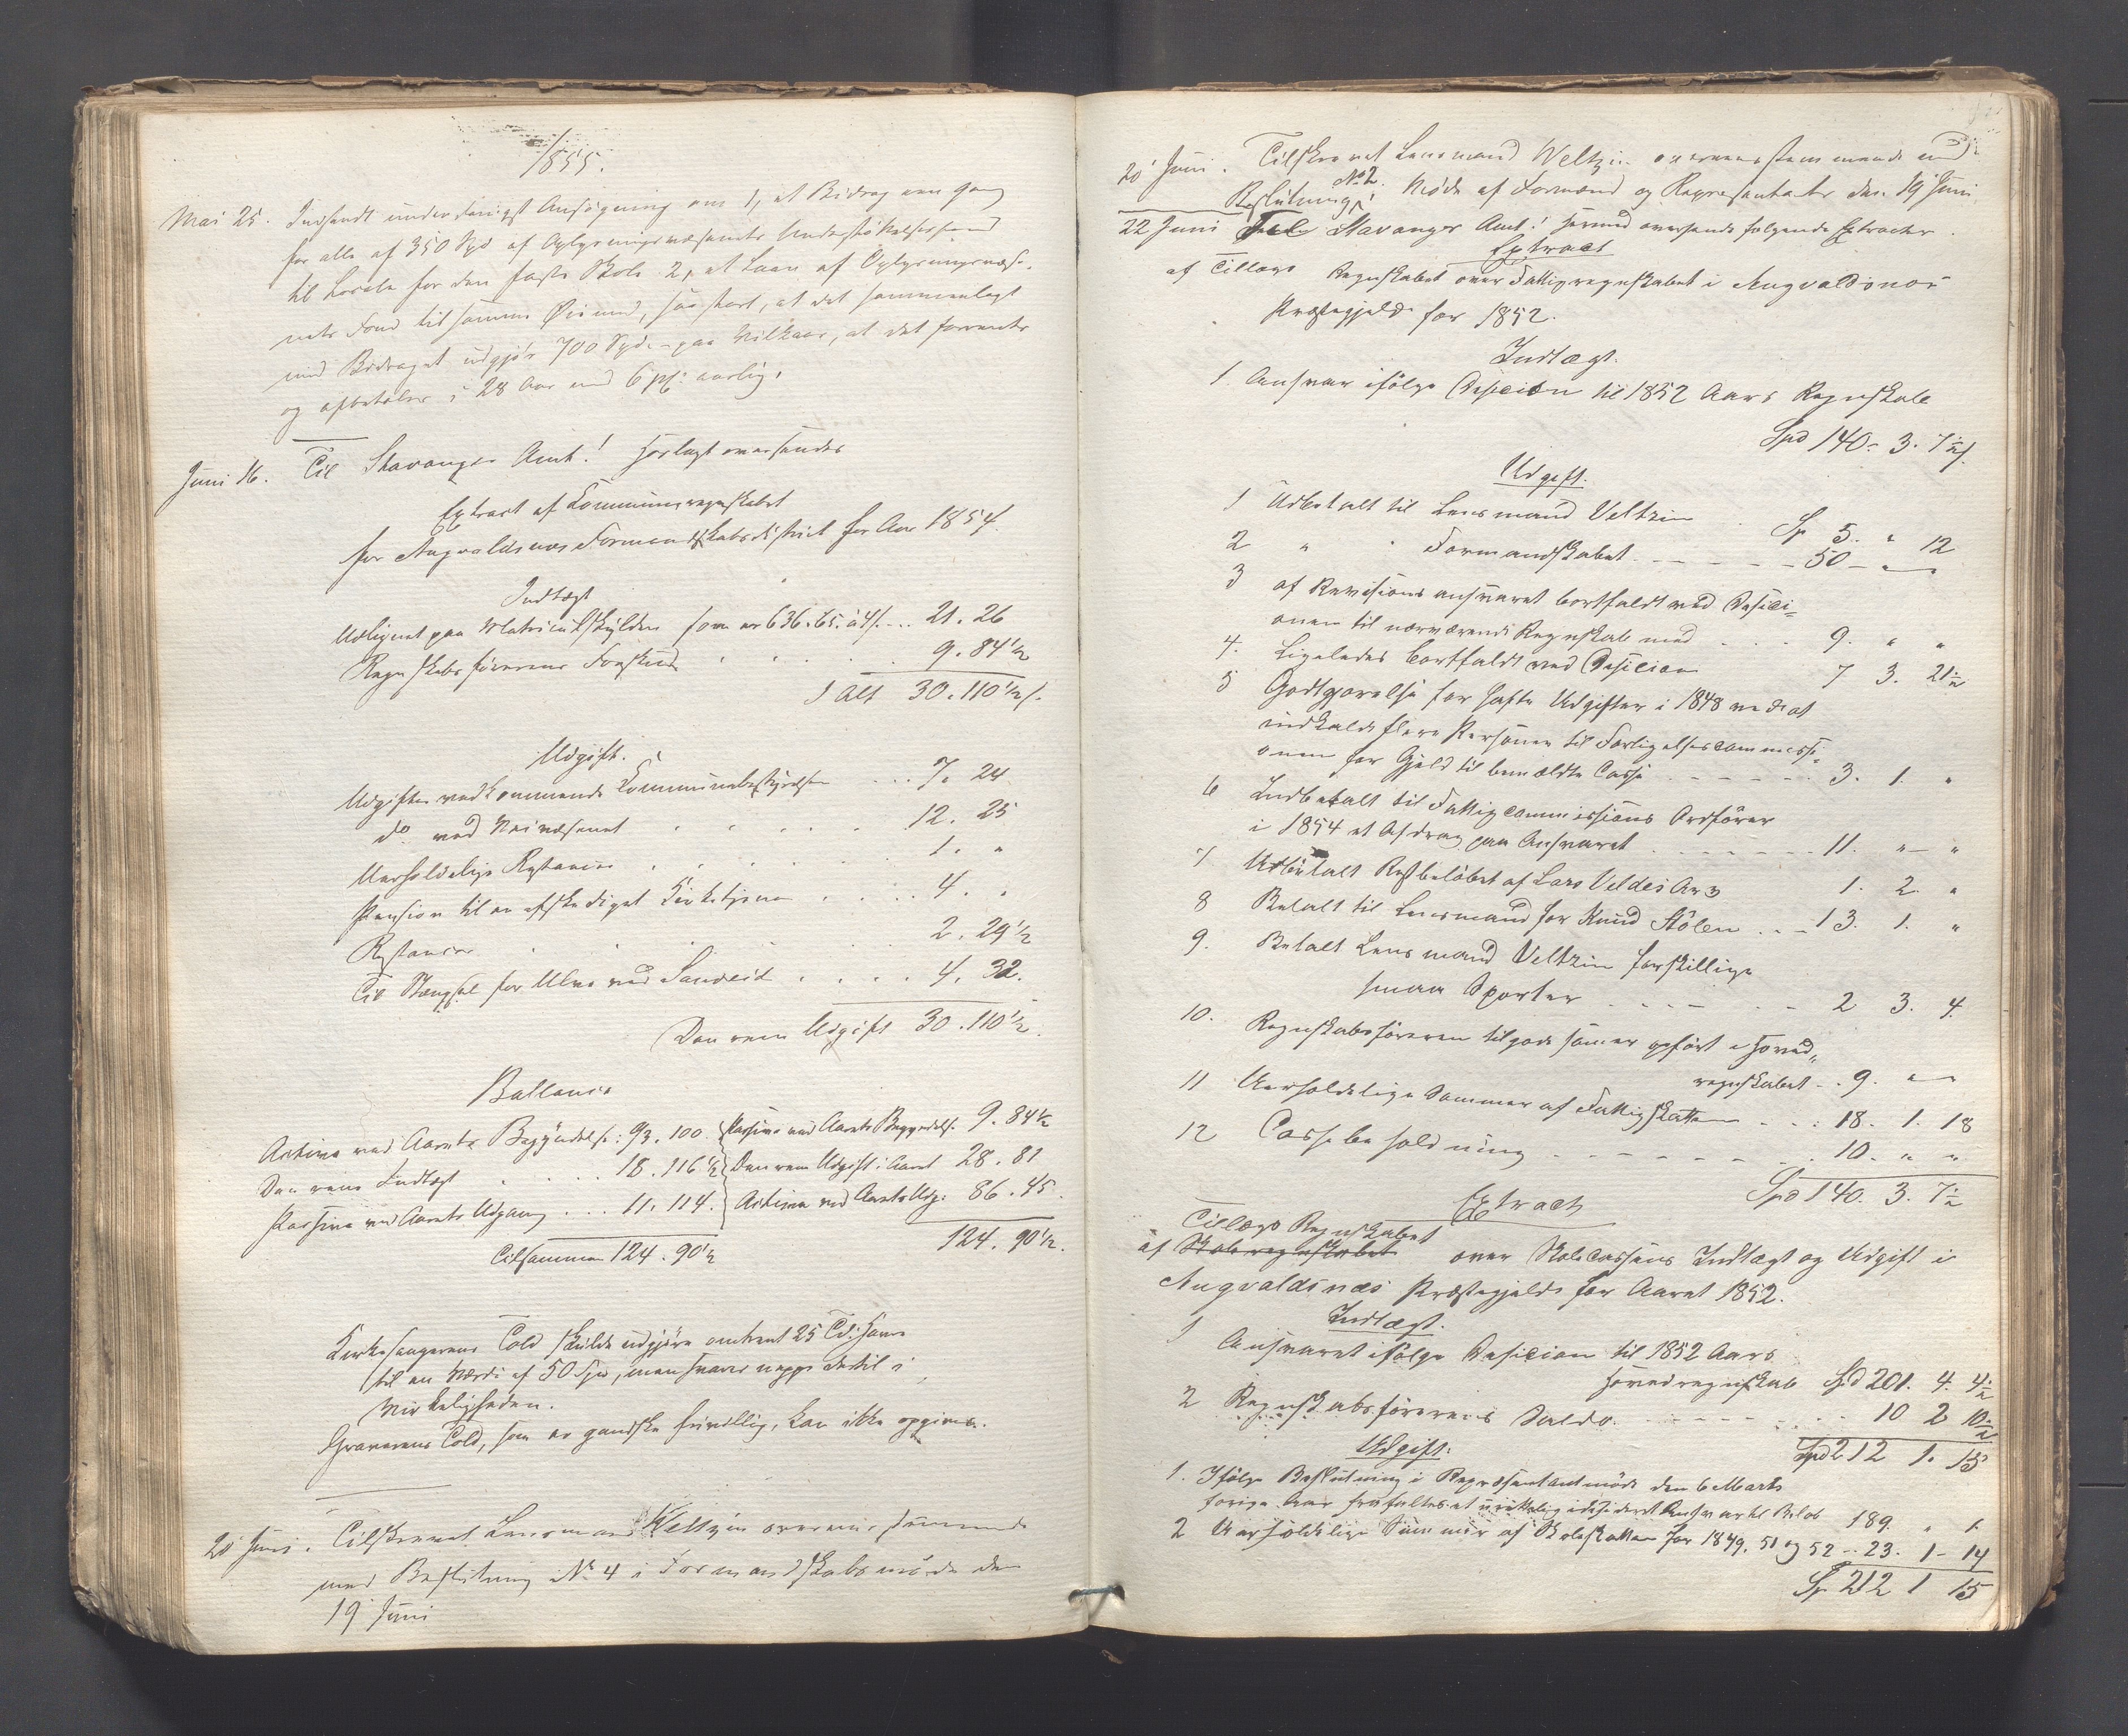 1855.
Mai 25. Indsendt underdanigst Ansøgning om 1, et Bidrag een Gang
for alle af 350 Spd af Oplysningsvæsenets Understøttelsesfond
til Locale for den faste Skole 2, et Laan af Oplysningsvæse-
nets Fond til samme Øiemed, saa stort, at det sammenlagt
med Bidraget udgjør 700 Spd. - paa Vilkaar, at det forrentes
og afbetales i 28 Aar med 6 pC: aarlig.
Juni 16. Til Stavanger Amt! Hoslagt oversendes
Extract af Kommuneregnskabet
for Augvaldsnes Formandskabsdistrict for Aar 1854.
Indtægt
Udlignet paa Matriculskylden som er 636. 65. à 4 /. . . 21. 26
Regnskabsførerens Forskud . . . . 9. 84 1/2
I Alt 30. 110 1/2 /.
Udgift.
Udgifter vedkommende Kommunebestyrelsen . . . 7. 24
do ved Veivæsenet . . . . . 12. 25
Uerholdelige Restancer . . . . . 1. "
Pension til en afskediget Kirketjener . . . . 4. "
Restancer . . . . . 2. 29 1/2
Til Stængsel for Ulve ved Sandeid . . . . 4. 32.
Den rene Udgift 30. 110 1/2.
Ballance
Activa ved Aarets Begyndelse: 93. 100. Passiva ved Aarets Begyndelse. 9. 84 1/2
Den rene Indtægt . . . . 18. 116 1/2 Den rene Udgift i Aaret 28. 81
Passiva ved Aarets Udgang . . . 11. 114. Activa ved Aarets Udg: 86. 45.
Tilsammen 124. 90 1/2 124. 90 1/2.
Kirkesangerens Told skulde udgjøre omtrent 25 Td: Havre
til en Værdi af 50 Spd, men svarer neppe dertil i
Virkeligheden.
Graverens Told, som er gandske frivillig, kan ikke opgives.
20 Juni. Tilskrevet Lensmand Weltzin overensstemmende
med Beslutning No 4 i Formandskabsmøde den
19 Juni
20 Juni. Tilskrevet Lensmand Weltzin overensstemmende med
Beslutning No 2. i Møde af Formænd og Repræsentanter den 19 Juni
22 Juni Til Stavanger Amt! Hermed oversendes følgende Extracter.
Extract
af Tillægs Regnskabet over Fattigregnskabet i Augvaldsnes
Præstegjeld for 1852.
Indtægt.
1. Ansvar ifølge Decision til 1852 Aars Regnskab
Spd 140. 3. 7 1/2 /.
Udgift.
1 Udbetalt til Lensmand Veltzin . Sp 5. " 12
2 " " Formandskabet . - - - - 50 - "
3 af Revisions ansvaret bortfaldt ved Desici-
onen til nærværende Regnskab med . . . . 9. " "
4. Ligeledes bortfaldt ved Desicion 7 3. 21 1/2
5 Godtgjørelse for hafte Udgifter i 1848 ved at
indkalde flere Personer til Forligelsescommissi-
onen for Gjeld til bemældte Casse . - - - - 3. 1. "
6 Indbetalt til Fattigcommissions Ordfører
i 1854 et Afdrag paa Ansvaret . - - - - 11. " "
7 Udbetalt Restbeløbet af Lars Veldei Arv 1. 2. "
8 Betalt til Lensmand for Knud Stölen . . - 13. 1. "
9. Betalt Lensmand Veltzin forskillige
smaa Sporter . - - - - 2 3. 4.
10. Regnskabsføreren tilgode som er opført i Hoved-
regnskabet . . 9. "
11 Uerholdelige Sommer af Fattigskatten . . . 18. 1. 18
12 Cassebeholdning . - - - - 10. " "
Spd 140. 3. 7 1/2
Extract
Tillægs Regnskabet
af Skoleregnskabet over Skolecassens Indtægt og Udgift i
Augvaldsnæs Præstegjeld for Aaret 1852.
Indtægt.
1 Ansvaret ifølge Desicion til 1852 Aars
Hovedregnskab Spd 201. 4. 4 1/2
2 Regnskabsførerens Saldo. - - - - 10 2 10 1/2
Spd 212 1. 15
Udgift.
1. Ifølge Beslutning i Repræsentantmøde den 6 Marts
forige Aar frafaldtes et Ansvarets Beløb 189. " 1.
2 Uerholdelige Summer af Skoleskatten for 1849. 51 og 52 . . 23. 1 - 14
Sp 212 1 15